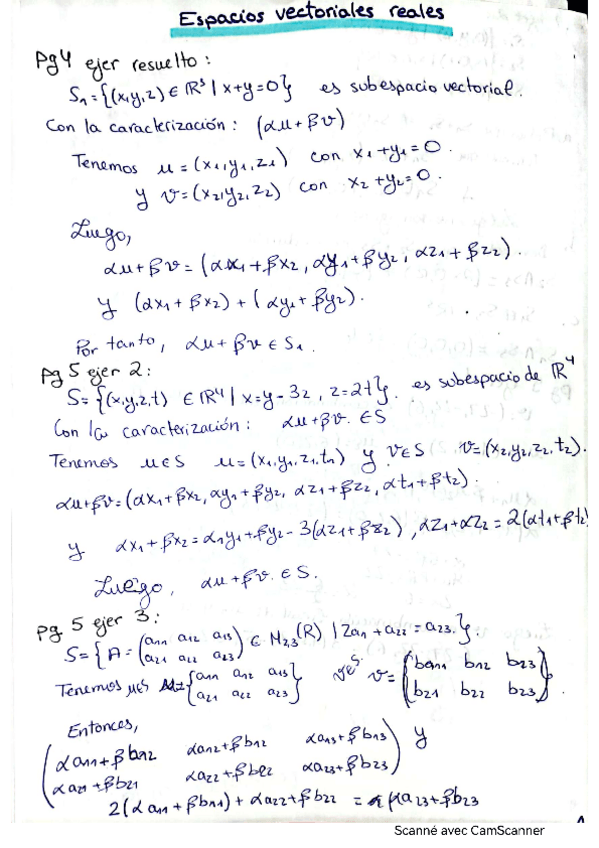 Espacios vectoriales reales
Pg 4 ejer resuelto:
S₁={(x,y,z)∈ℝ³ | x+y=0} es subespacio vectorial.
Con la caracterización: (αu+βv)
Tenemos u=(x₁,y₁,z₁) con x₁+y₁=0.
y v=(x₂,y₂,z₂) con x₂+y₂=0.
Luego,
αu+βv=(αx₁+βx₂, αy₁+βy₂, αz₁+βz₂).
y (αx₁+βx₂)+(αy₁+βy₂).
Por tanto, αu+βv∈S₁.
Pg 5 ejer 2:
S={(x,y,z,t) ∈ℝ⁴ | x=y-3z, z=2t}. es subespacio de ℝ⁴
Con la caracterización: αu+βv.∈S
Tenemos u∈S u=(x₁,y₁,z₁,t₁) y v∈S v=(x₂,y₂,z₂,t₂).
αu+βv=(αx₁+βx₂, αy₁+βy₂, αz₁+βz₂, αt₁+βt₂).
y αx₁+βx₂=α₁y₁+βy₂-3(αz₁+βz₂), αz₁+αz₂=2(αt₁+βt₂)
Luego, αu+βv.∈S.
Pg 5 ejer 3:
S={A=(a₁₁ a₁₂ a₁₃
a₂₁ a₂₂ a₂₃) ∈ M₂,₃(R) | 2a₁₁+a₂₂=a₂₃.}.
Tenemos u∈S {a₁₁ a₁₂ a₁₃
a₂₁ a₂₂ a₂₃} v∈S v=(b₁₁ b₁₂ b₂₃
b₂₁ b₂₂ b₂₃).
Entonces,
(αa₁₁+βb₁₂ αa₁₂+βb₁₂ αa₁₃+βb₁₃
αa₂₁+βb₂₁ αa₂₂+βb₂₂ αa₂₃+βb₂₃) y
2(αa₁₁+βb₁₁)+αa₂₂+βb₂₂ = αa₂₃+βb₂₃
Scanné avec CamScanner